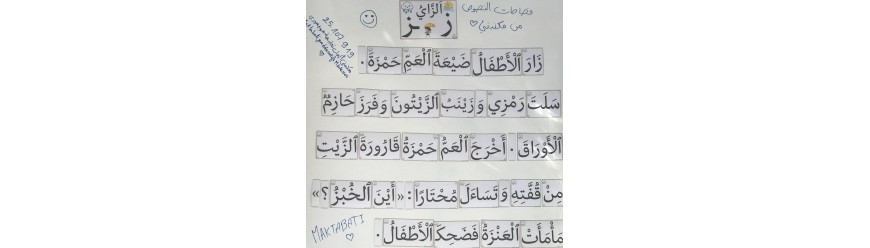 الزَّايُ
ز ـز
قصاصات النصوص
من مكتبتي
25.107.919
زَارَ ٱلْأَطْفَالُ ضَيْعَةَ ٱلْعَمِّ حَمْزَةَ.
سَلَتَ رَمْزِي وَ زَيْنَبُ ٱلزَّيْتُونَ وَ فَرَزَ حَازِمٌ
ٱلْأَوْرَاقَ. أَخْرَجَ ٱلْعَمُّ حَمْزَةُ قَارُورَةَ ٱلزَّيْتِ
مِنْ قُفَّتِهِ وَ تَسَاءَلَ مُحْتَارًا: «أَيْنَ ٱلْخُبْزُ؟»
مَأْمَأَتْ ٱلْعَنْزَةُ فَضَحِكَ ٱلْأَطْفَالُ.
MAKTABATI